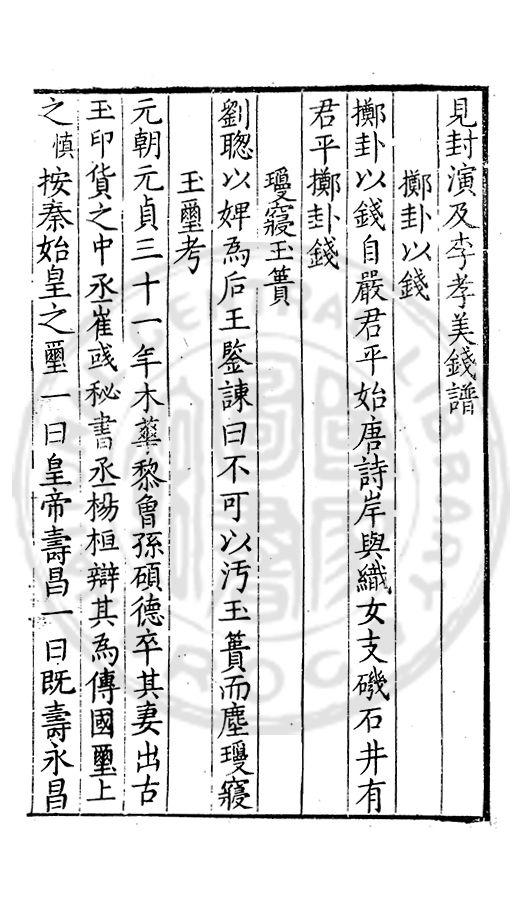 見封演及李孝美錢譜
擲卦以錢
擲卦以錢自嚴君平始唐詩岸與織女支磯石井有
君平擲卦錢
瓊寢玉簀
劉聰以婢為后王鑒諫曰不可以汚玉簀而塵瓊寢
玉璽考
元朝元貞三十一年木華黎曾孫碩德卒其妻出古
玉印貨之中丞崔彧秘書丞楊桓辯其為傳國璽上
之慎按秦始皇之璽一曰皇帝壽昌一曰既壽永昌
CENTRAL LIBRARY
ROC